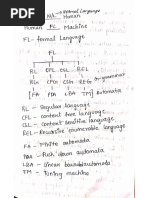 NL Human
Human FL Machine
FL - formal Language
FL
RL CFL CSL REL
RG CFG CSG REG
FA PDA LBA TM } automata
RL - Regular language
CFL - context free language
CSL - Context sensitive language
REL - Recursive enumerable language
FA - Finite automata
PDA - Push down automata
LBA - Linear bounded automata
TM - Turing machine